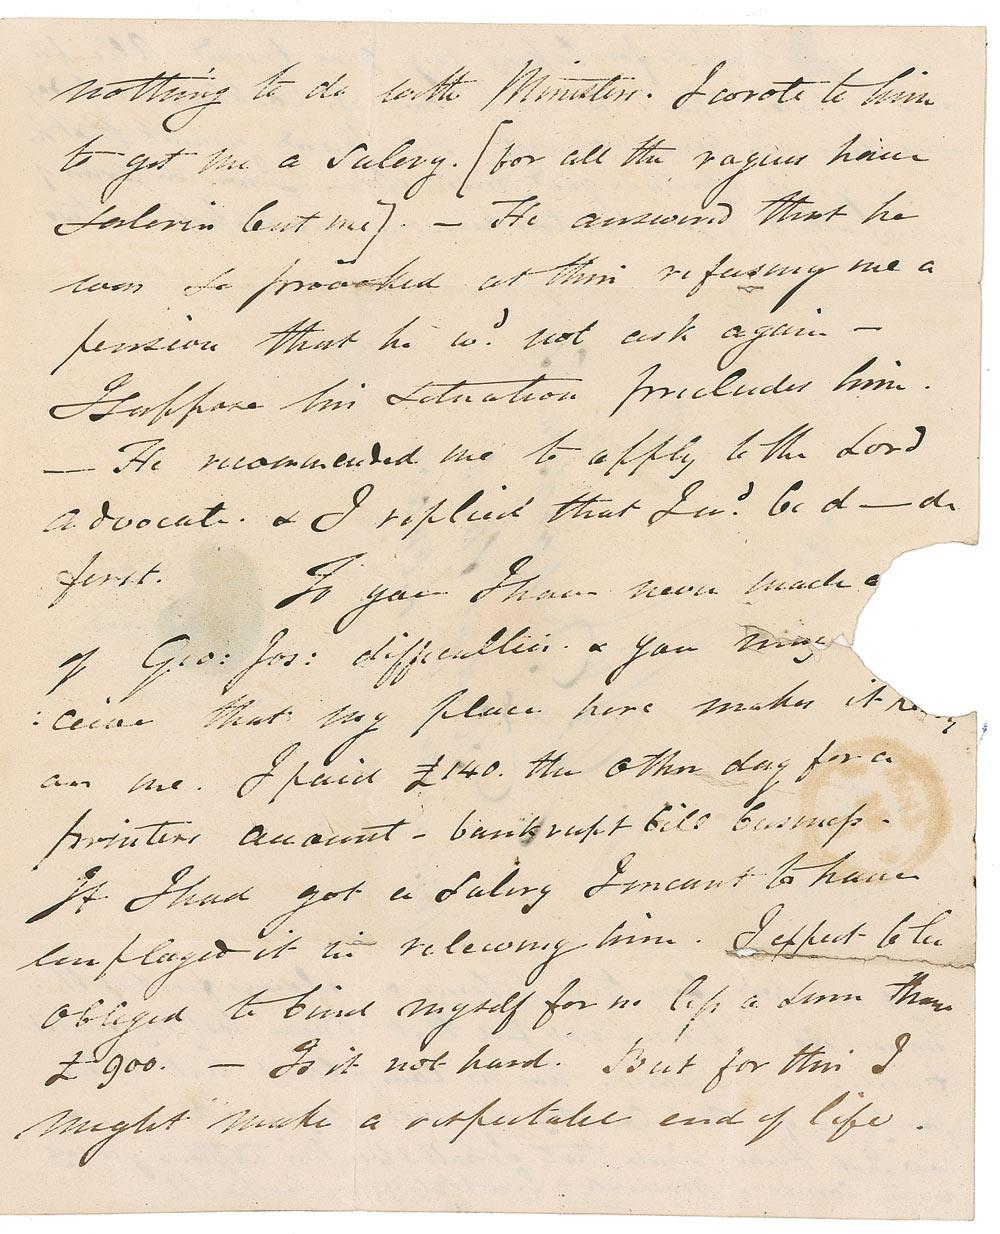 nothing to do with Ministers. I wrote to him
to get me a Salery. [for all the regius have
Saleries but me]. — He answered that he
was so provoked at their refusing me a
pension that he wd. not ask again —
I suppose his situation precludes him.
— He recommended me to apply to the Lord
advocate. & I replied that I wd. be d—d
first. To you I have never made a
of Geo: Jos: difficulties. & you may
:ceive that my place here makes it
on me. I paid £140. the other day for a
printers account - bankrupt bill business -
If I had got a Salery I meant to have
employed it in releiving him. I expect to be
obliged to bind myself for no less a sum than
£900. — Is it not hard. But for this I
might make a respectable end of life.